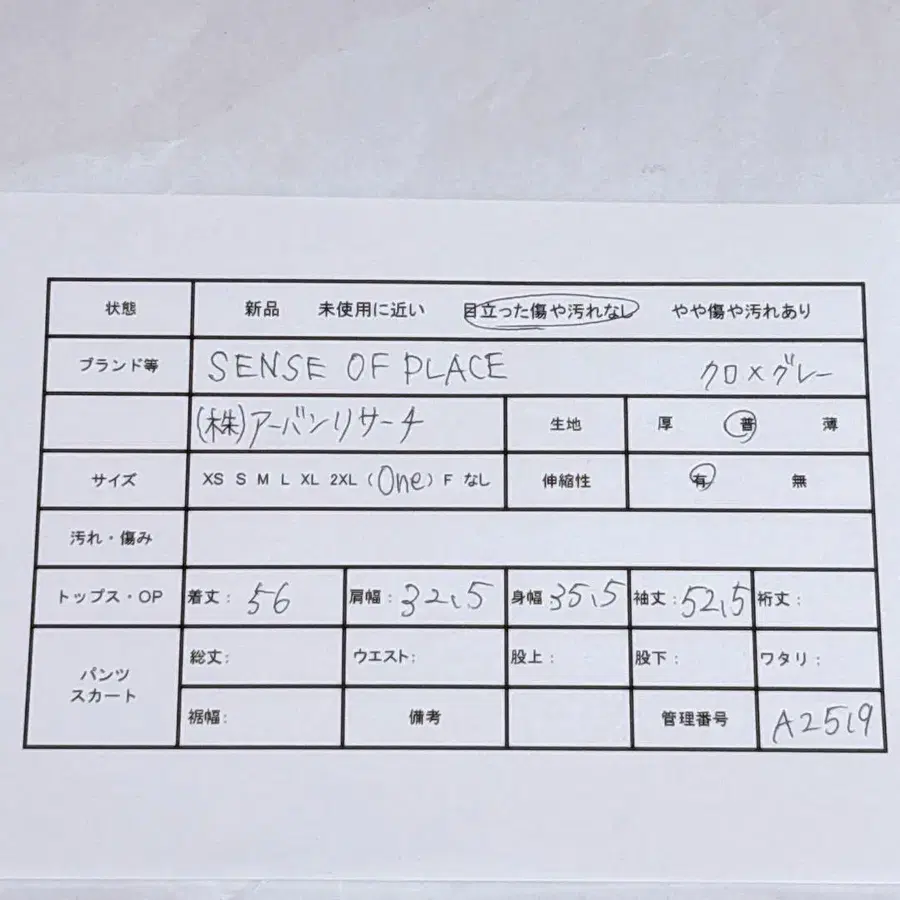 状態 新品 未使用に近い 目立った傷や汚れなし やや傷や汚れあり
ブランド等 SENSE OF PLACE クロ×グレー
(株)アーバンリサーチ 生地 厚 普 薄
サイズ XS S M L XL 2XL (One) F なし 伸縮性 有 無
汚れ・傷み
トップス・OP 着丈: 56 肩幅: 32,5 身幅 35,5 袖丈: 52,5 裄丈:
パンツ スカート
総丈: ウエスト: 股上: 股下: ワタリ:
裾幅: 備考 管理番号 A2519